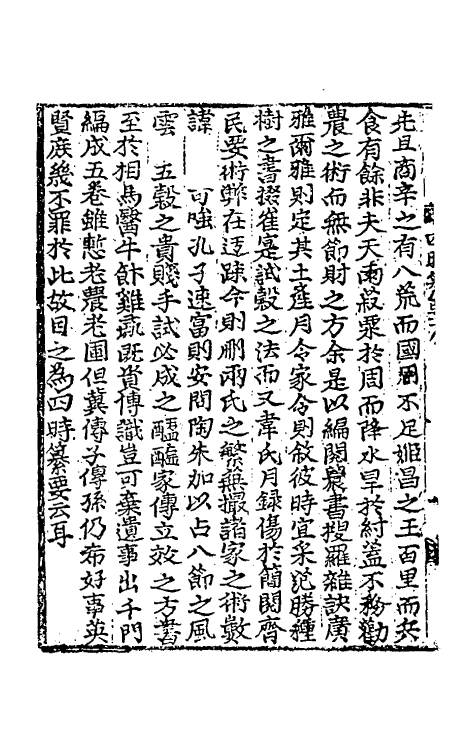 先且商辛之有八荒而國用不足姬昌之王百里而兵
食有餘非夫天雨菽粟於周而降水旱於紂蓋不務勸
農之術而無節財之方余是以編閱農書搜羅雜訣廣
雅爾雅則定其土產月令家令則敘彼時宜采范勝種
樹之書掇崔寔試穀之法而又韋氏月録傷於簡閱齊
民要術弊在迂疎今則刪兩氏之繁蕪撮諸家之術數
諱可嗤孔子速富則安問陶朱加以占八節之風
雲五穀之貴賤手試必成之醯醢家傳立效之方書
至於相馬醫牛飰雞彘既資博識豈可棄遺事出千門
編成五卷雖慙老農老圃但冀傳子傳孫仍希好事英
賢庶幾不罪於此故目之為四時纂要云耳